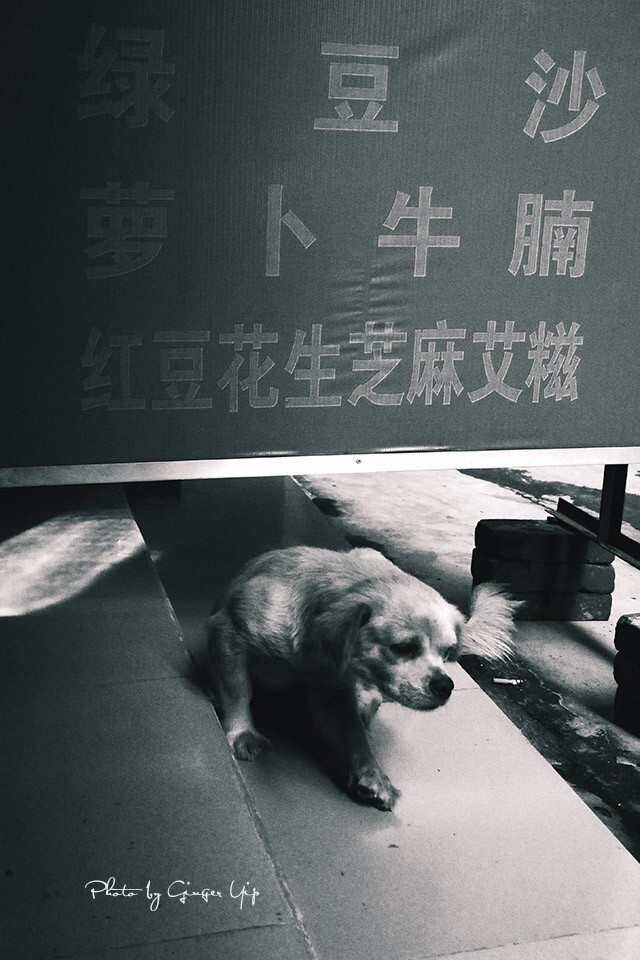 绿豆沙
萝卜牛腩
红豆花生芝麻艾糍
Photo by Ginger Yip